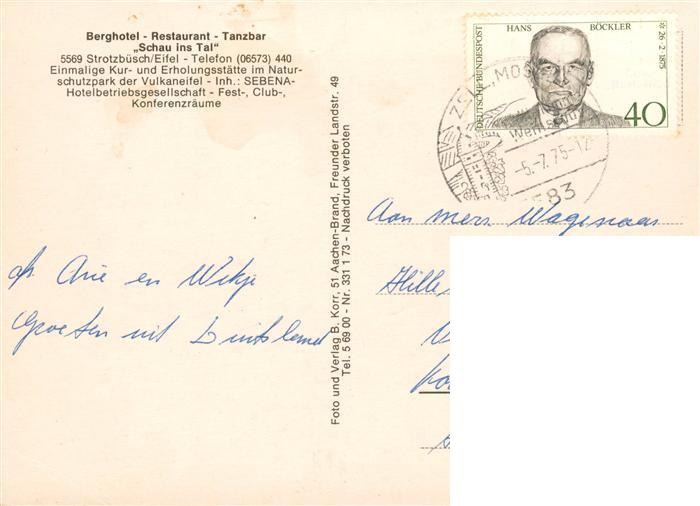 Berghotel - Restaurant - Tanzbar
„Schau ins Tal"
5569 Strotzbüsch/Eifel - Telefon (06573) 440
Einmalige Kur- und Erholungsstätte im Natur-
schutzpark der Vulkaneifel - Inh.: SEBENA-
Hotelbetriebsgesellschaft - Fest-, Club-,
Konferenzräume
Groeten uit Duitsland
Foto und Verlag B. Korr, 51 Aachen-Brand, Freunder Landstr. 49
Tel. 5 69 00 - Nr. 331 1 73 - Nachdruck verboten
DEUTSCHE BUNDESPOST
HANS BÖCKLER
* 26·2·1875
40
ZELL, MOS
-5.-7.75-12
583
Aan mevr Wagenaar
Hille